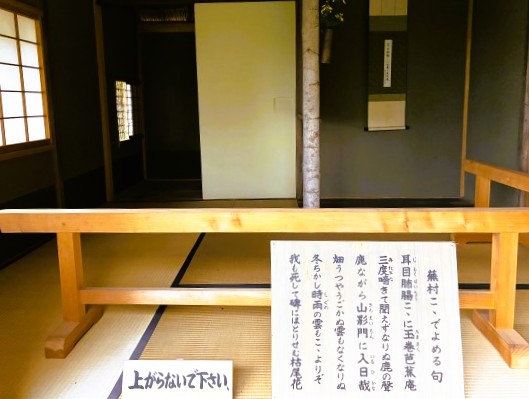 蕪村こゝでよめる句
耳目肺腸こゝに玉巻芭蕉庵
三度啼きて聞えずなりぬ鹿の聲
鹿ながら山影門に入日哉
畑うつやうごかぬ雲もなくなりぬ
冬ちかし時雨の雲もこゝよりぞ
我も死して碑にほとりせむ枯尾花
上がらないで下さい。